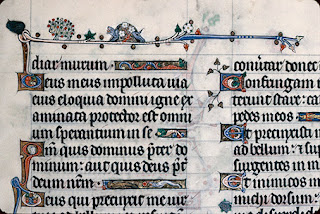 diar murum.
Deus meus impolluta uia
eius eloquia domini igne ex
aminata protector est omni
um sperantium in se
Qm̄ quis dominus p̄ter do
minum: aut quis deus p̄t̄
deum nr̄m.
Deus qui precinxit me uir
conũtar donec
Confringam
terunt stare: ca
pedes meos
Et precinxisti
ad bellum: et su
surgentes in m
Et inimicos
michi dorsum: